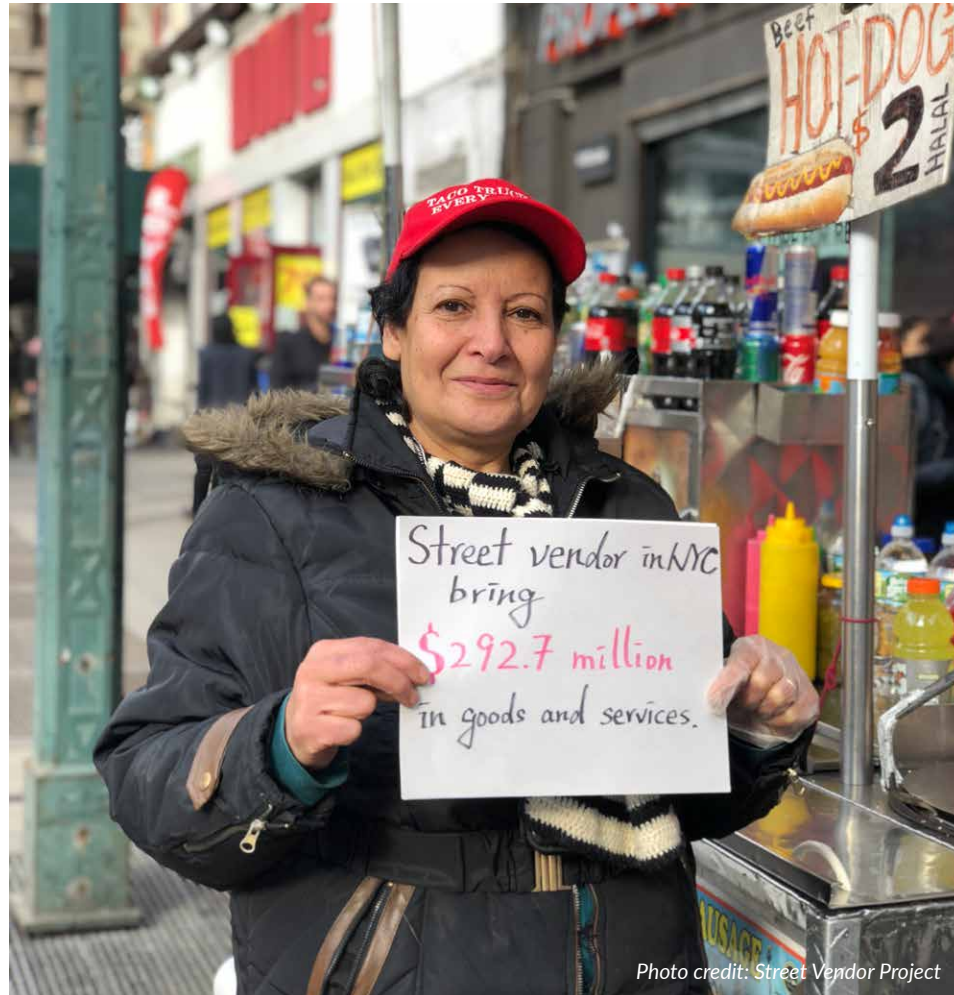 Beef
HOT-DOG
$2
HALAL
TACO TRUCK
EVERY
Street vendor in NYC
bring
$292.7 million
in goods and services.
Photo credit: Street Vendor Project